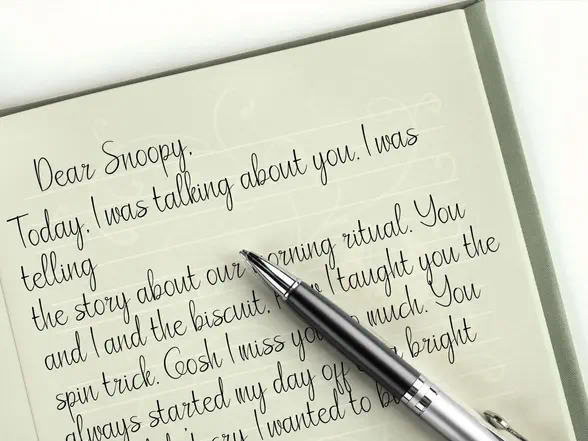 Dear Snoopy,
Today, I was talking about you. I was
telling
the story about our morning ritual. You
and I and the biscuit. How I taught you the
spin trick. Gosh I miss you so much. You
always started my day off a bright
cry I wanted to